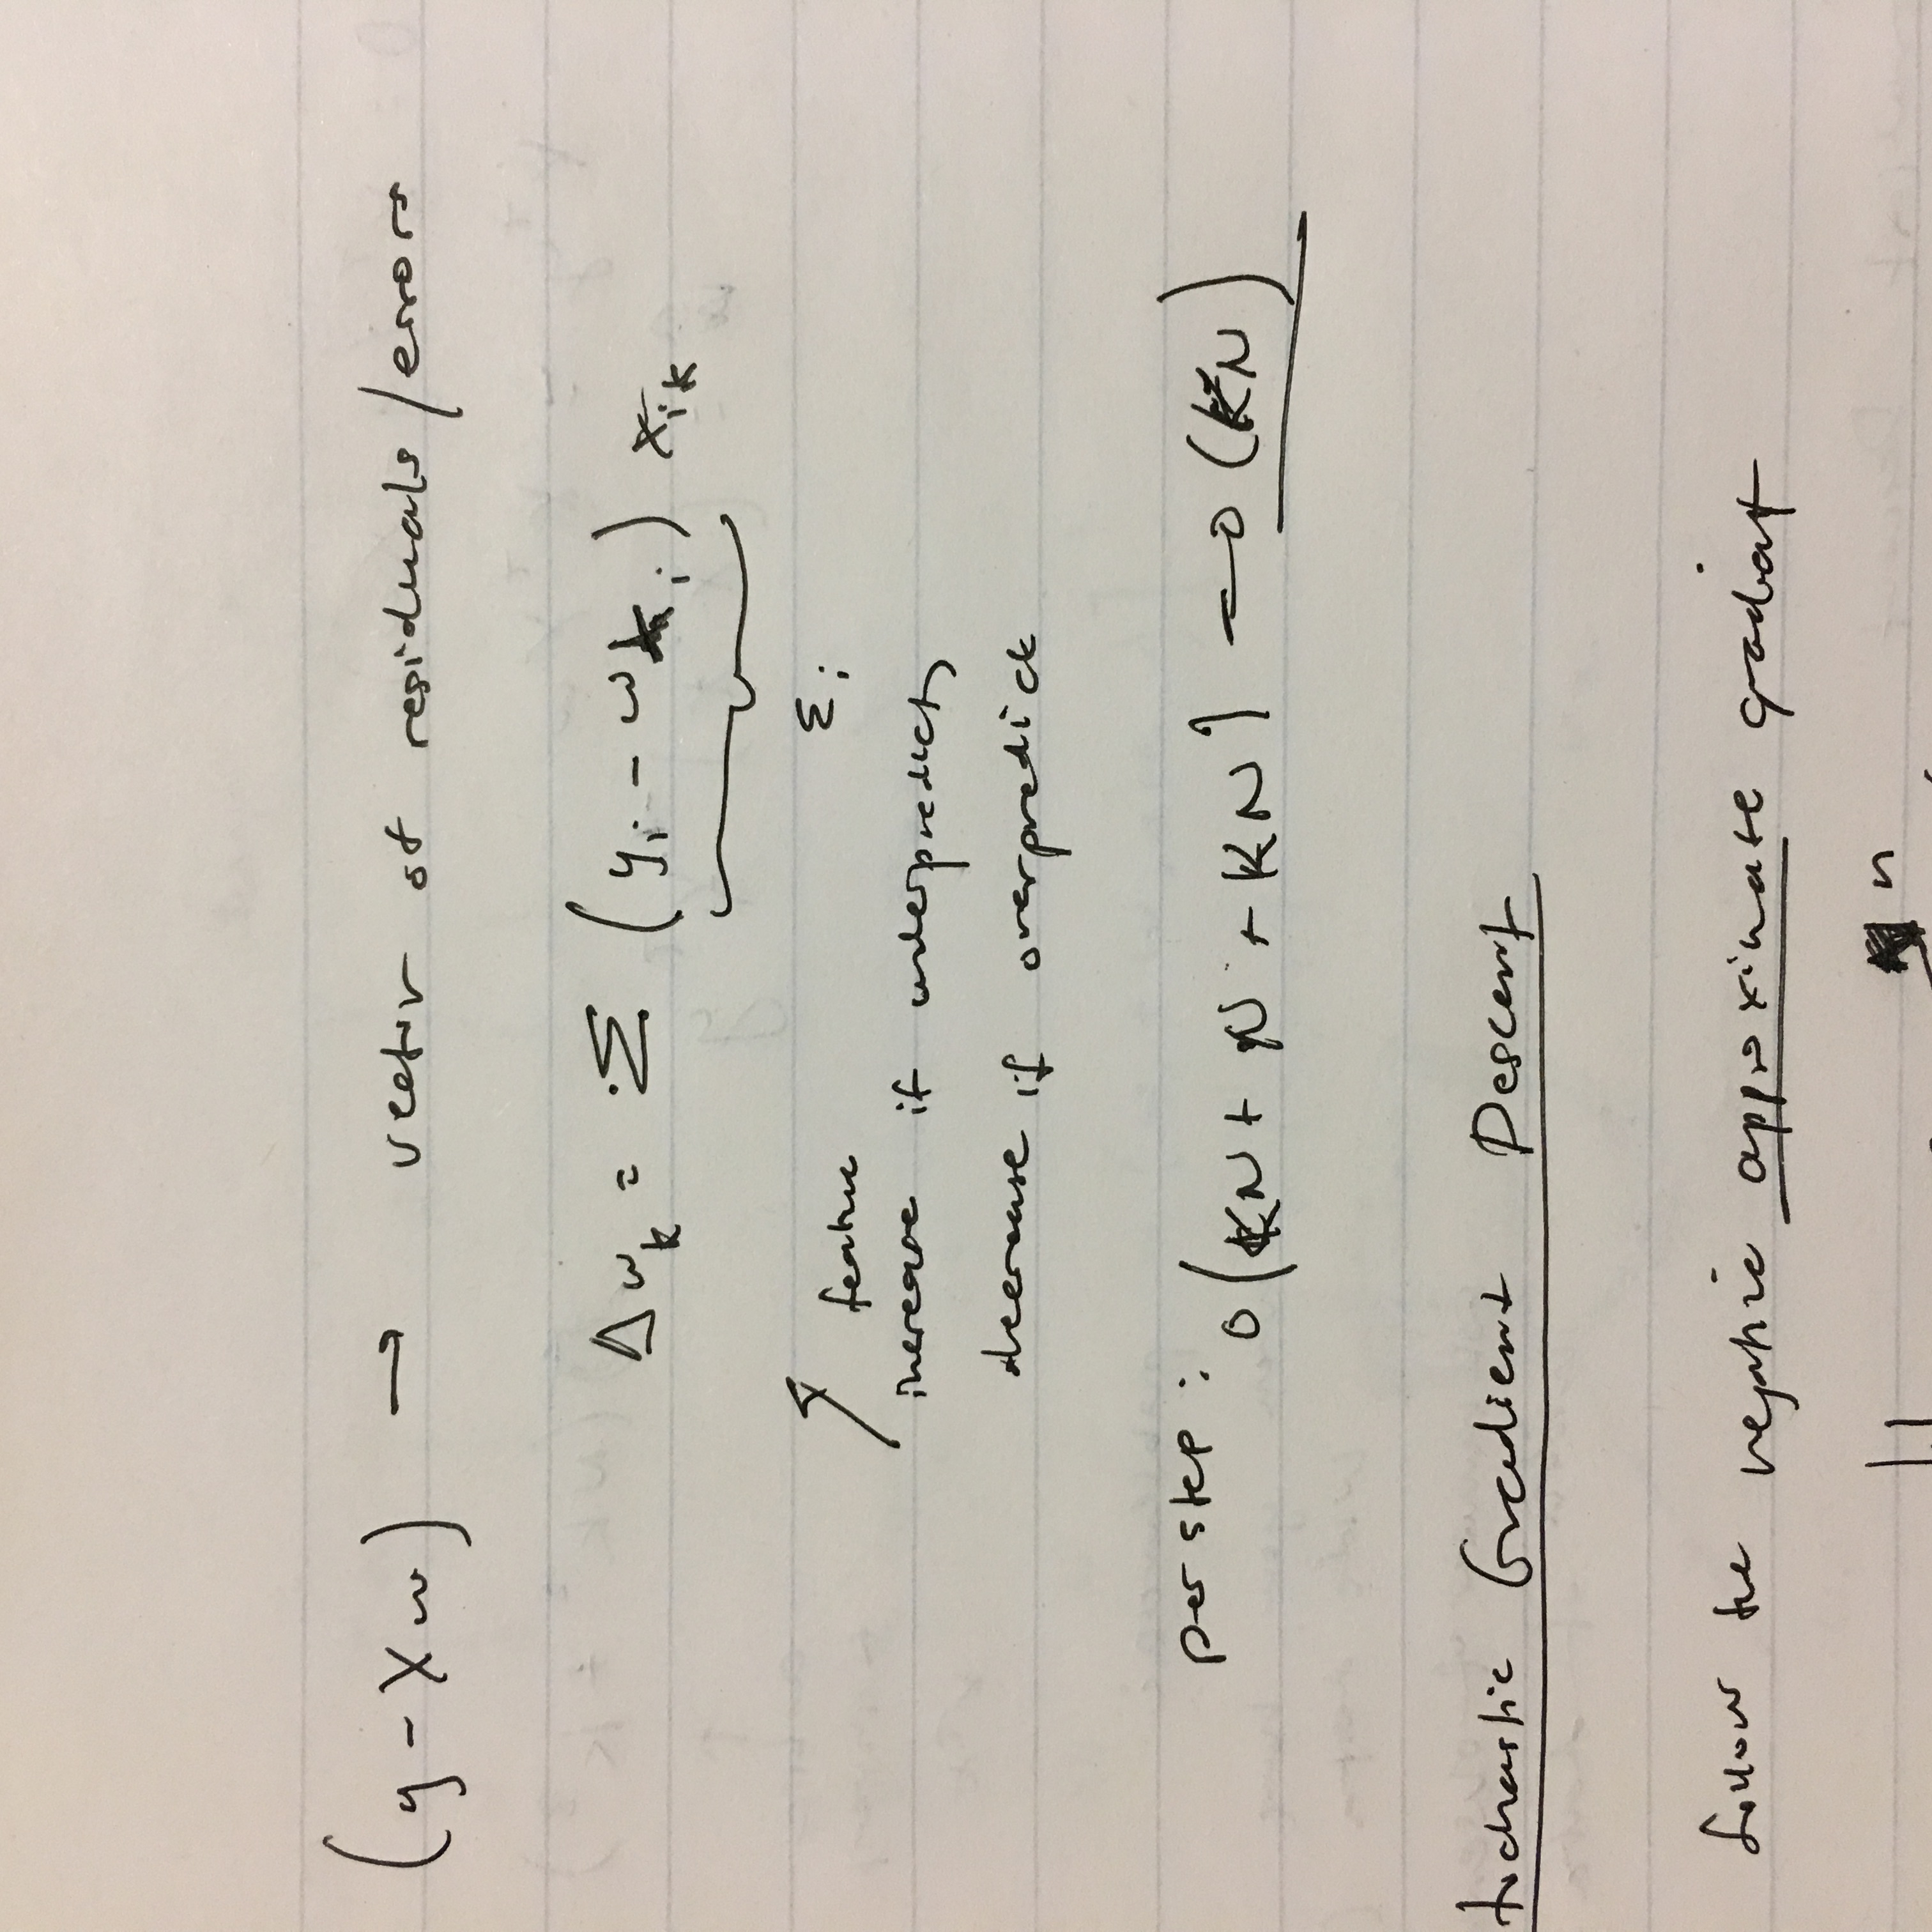 (y - Xw) → vector of residuals/errors
Δw_k = Σ (y_i - w x_i) x_ik
ε_i
feature
increase if underpredict,
decrease if overpredict
per step: O(KN + N + KN) → O(KN)
tochastic Gradient Descent
follow the negative approximate gradient
n